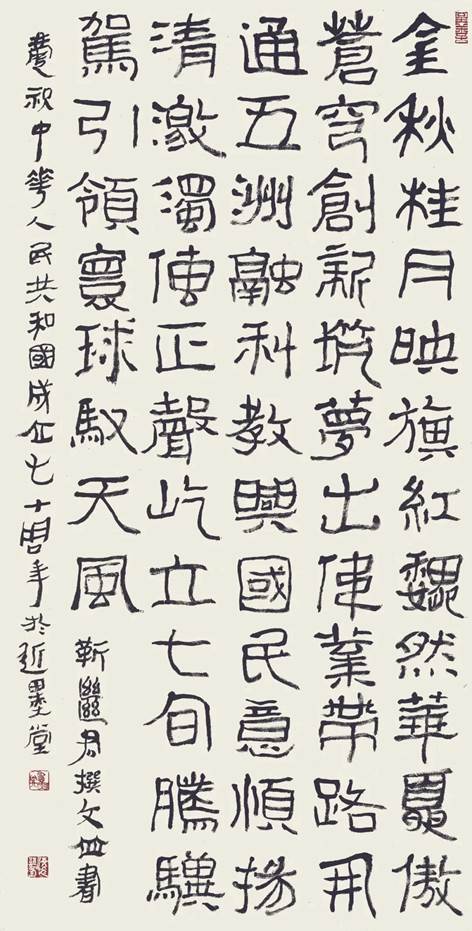 金秋桂月映旗紅巍然華夏傲
蒼穹創新筑夢出偉業帶路开
通五洲融科教興國民意順揚
清激濁正聲屹立七旬騰驥
駕引領寰球馭天風 靳繼君撰文並書
慶祝中華人民共和國成立七十周年於近墨堂